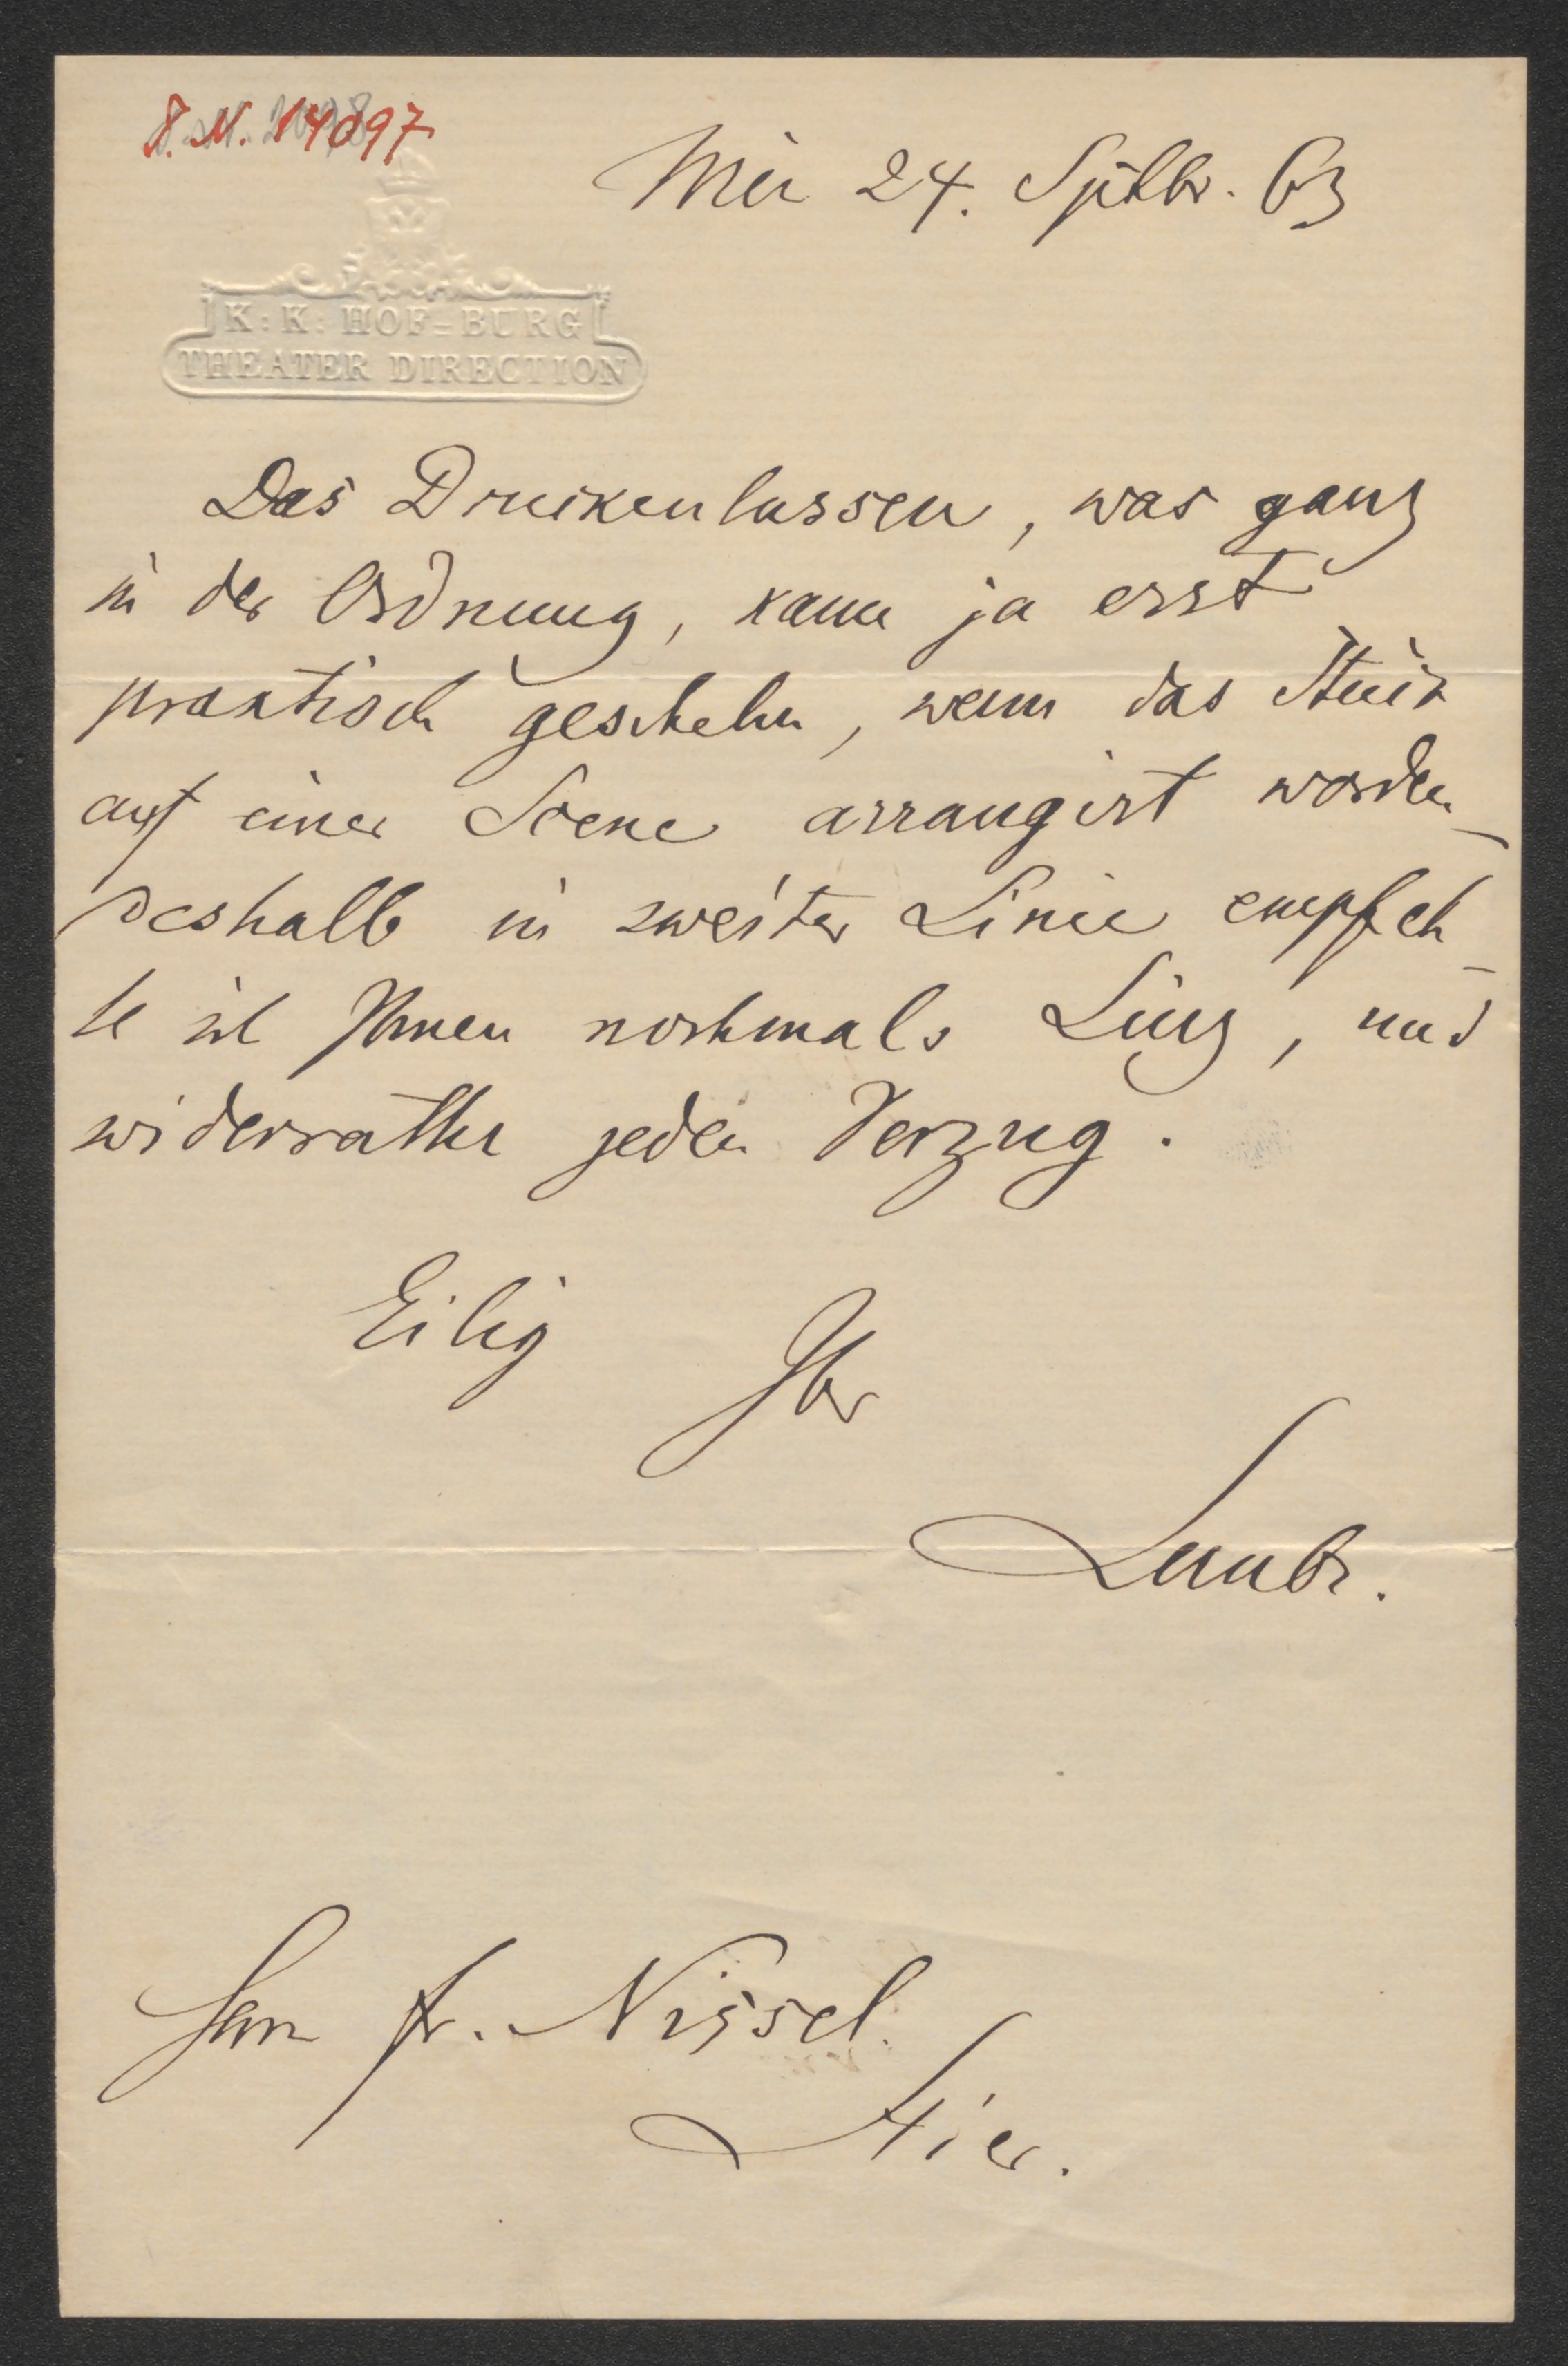 J. N. 14097
Wien 24. Sptbr. 63
K: K: HOF-BURG
THEATER DIRECTION
Das Druckenlassen, was ganz
in der Ordnung, kann ja erst
praktisch geschehn, wenn das Stück
auf einer Scene arrangirt worden_
deshalb in zweiter Linie empfeh_
le ich Ihnen nochmals Linz, und
widerrathe jeden Verzug.
Eilig Ihr
Laube.
Herrn Fr. Nissel.
Hier.